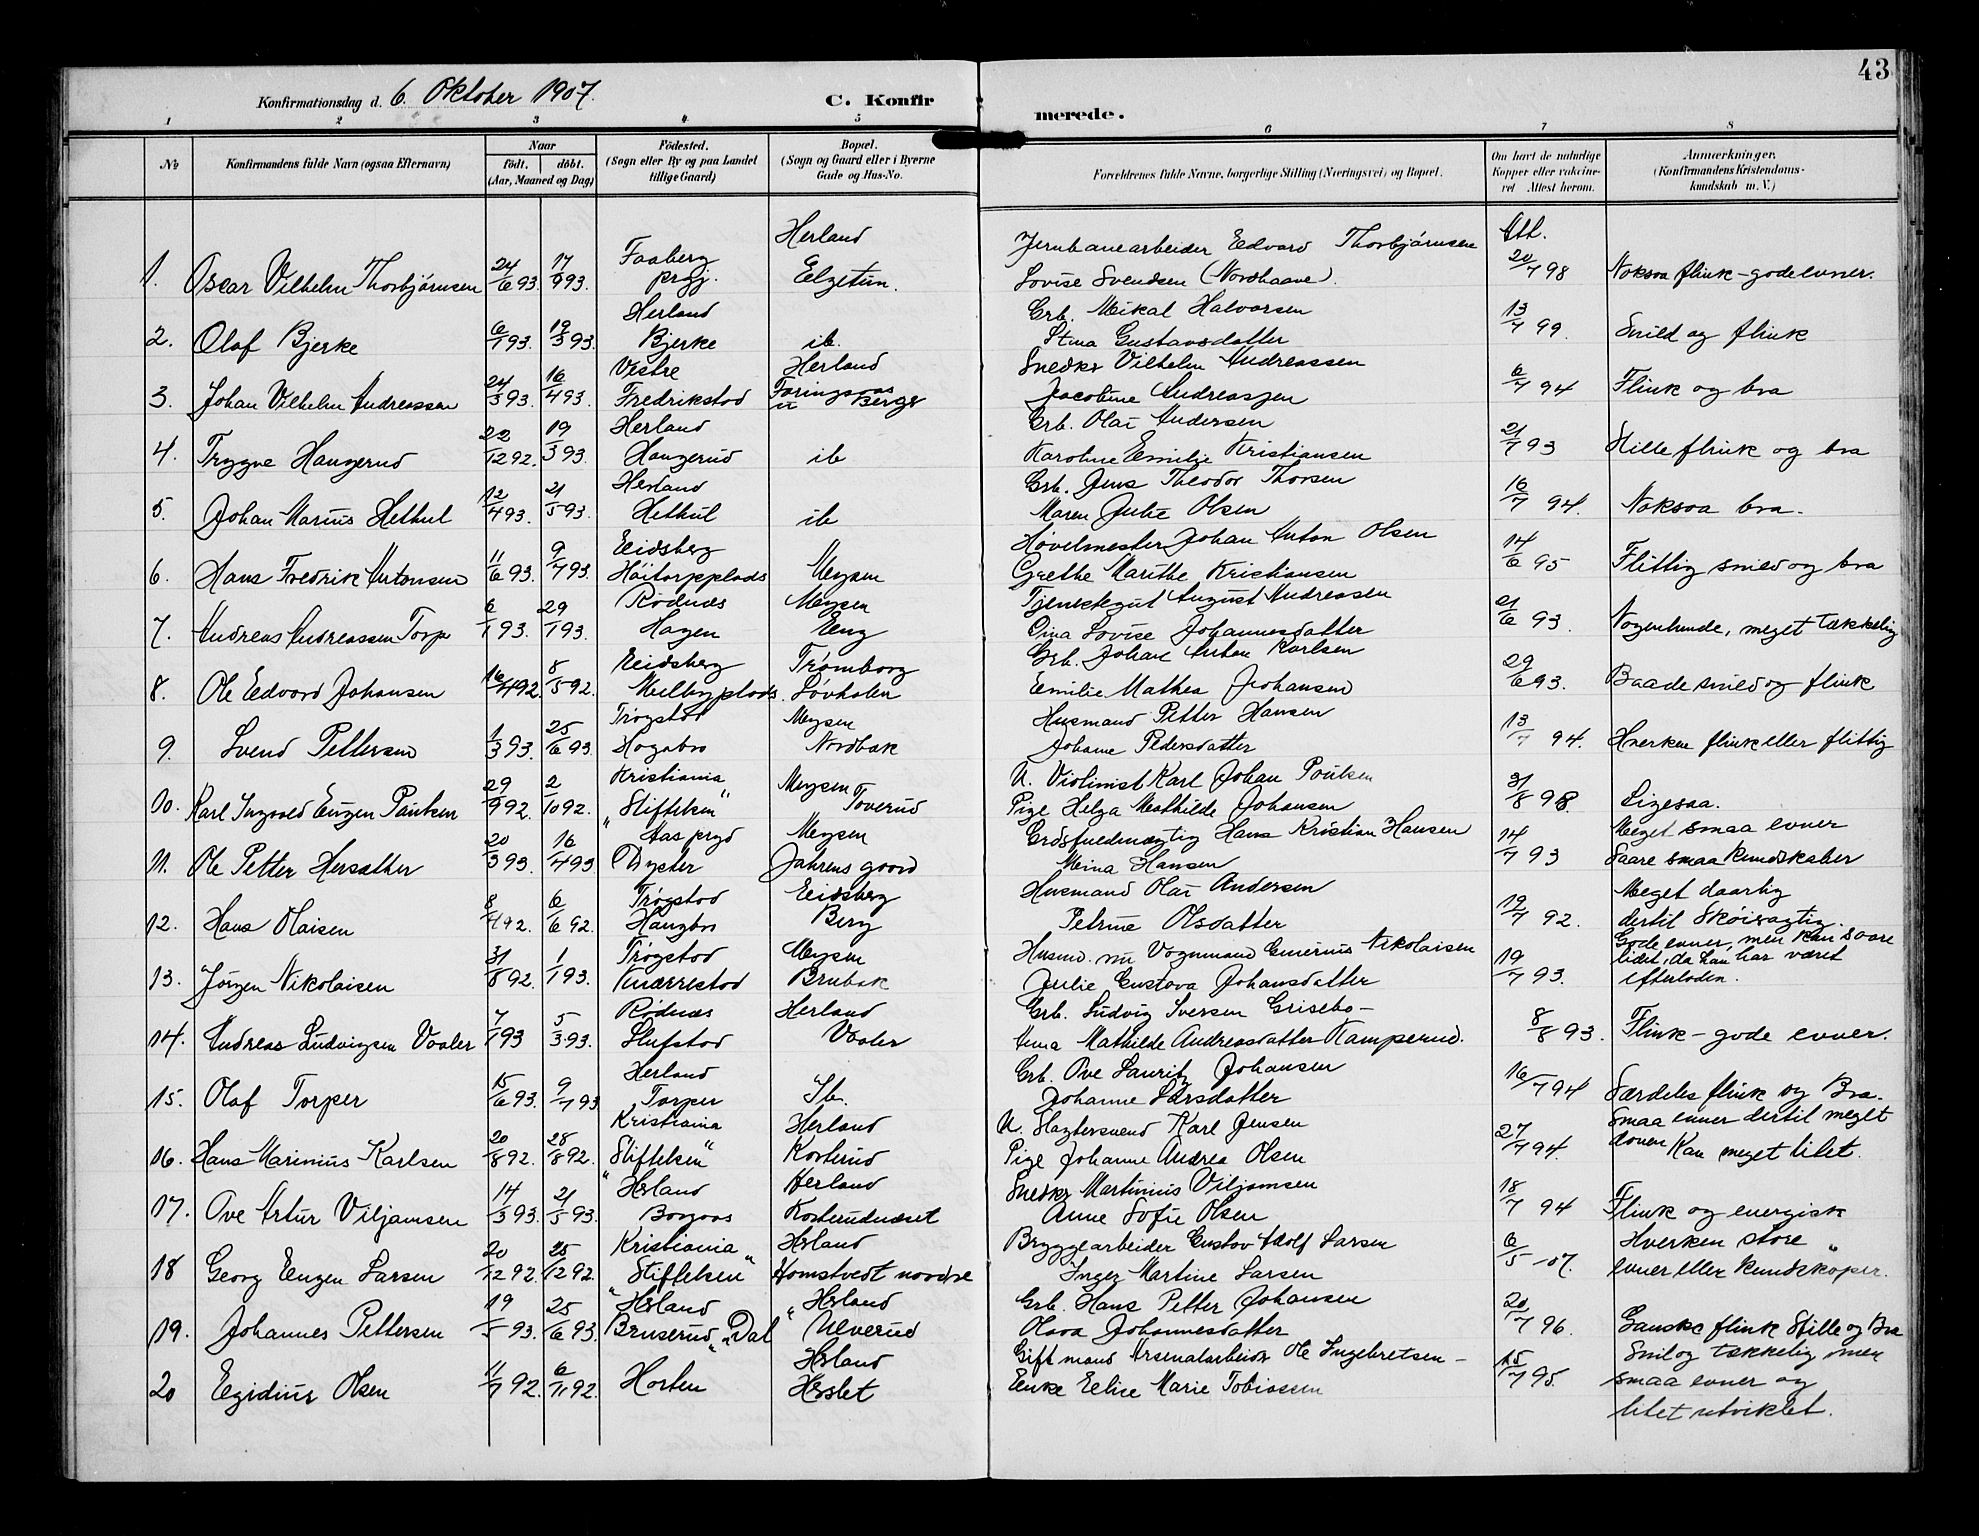 43
Konfirmationsdag d. 6. Oktober 1907.
C. Konfir merede.
1 2 3 4 5 6 7 8
No
Konfirmandens fulde Navn (ogsaa Efternavn)
Naar
födt. döbt.
(Aar, Maaned og Dag)
Födested.
(Sogn eller By og paa Landet
tillige Gaard)
Bopæl.
(Sogn og Gaard eller i Byerne
Gade og Hus-No.
Forældrenes fulde Navne, borgerlige Stilling (Næringsvei) og Bopæl.
Om havt de naturlige
Kopper eller vaccine-
ret Attest herom.
Anmærkninger.
(Konfirmandens Kristendoms-
kundskab m. V.)
Herland Jernbanearbeider Edvard Thorbjörnsen Att.
Faaberg
1. Oscar Vilhelm Thorbjörnsen 24/6 93. 17/9 93. prgj. Elgetun. Lovise Svendsen (Nordhaave). 20/7 98 Noksaa flink - gode evner.
Herland Grb. Mikal Halvorsen
2. Olaf Bjerke 6/1 93. 19/3 93. Bjerke ib. Stina Gustavsdatter 13/7 99. Snild og flink
Vestre Herland Snedker Vilhelm Andreassen
3. Johan Vilhelm Andreassen 24/3 93. 16/4 93. Fredrikstad Jacobine Andreassen 6/7 94 Flink og bra
Herland Grb. Olai Andersen
4. Trygve Haugerud 22/12 92. 19/3 93. Haugerud ib Karoline Emilie Kristiansen 21/7 93 Stille flink og bra
Herland Grb. Jens Theodor Thorsen
5. Johan Marius Hetkul 12/4 93. 21/5 93. Hetkul ib Maren Julie Olsen 16/7 94. Noksaa bra.
Eidsberg Hövelmester Johan Anton Olsen
6. Hans Fredrik Antonsen 11/6 93. 9/7 93. Höitorpplads Mysen Grethe Marthe Kristiansen 14/6 95 Flittig snild og bra
Rödnæs Mysen Tjenestegut August Andreasen
7. Andreas Andreassen Torp 6/1 93. 29/1 93. Hagen Eng Lina Lovise Johannesdatter 21/6 93. Nogenlunde, meget tækkelig
Eidsberg Trömborg Grb. Johan Anton Karlsen
8. Ole Edvard Johansen 16/4 92. 8/5 92. Melbyplads. Lövholen Emilie Mathea Johansen 29/6 93. Baade snild og flink
Trögstad Mysen Husmand Petter Hansen
9. Svend Pettersen 1/3 93. 25/6 93. Hogabro Nordbak Johanne Pedersdatter 13/7 94. Hverken flink eller flittig
Kristiania Mysen U. Violinist Karl Johan Poulsen
10. Karl Ingvald Eugen Paulsen 29/9 92. 2/10 92. "Stiftelsen" Toverud Pige Helga Mathilde Johansen 31/8 98. Ligesaa.
Aas prgd Mysen Godsfuldmægtig Hans Kristian Hansen Meget smaa evner
11. Ole Petter Hersæther 20/3 93. 16/4 93 Dyster Jahrens gaard Mina Hansen 14/7 93 Saare smaa Kundskaber
Trögstad Eidsberg Husmand Olai Andersen Meget daarlig
12. Hans Olaisen 8/4 92. 6/6 92. Haugbro Berg Petrine Olsdatter 19/7 92. dertil Sköieragtig.
Trögstad Mysen Husmd. nu Vognmand Enerius Nikolaisen Gode evner, men kan saare
lidet, da han har været
13. Jörgen Nikolaisen 31/8 92. 1/1 93. Knærrestad Brubak Julie Gustava Johansdatter 19/7 93. efterladen.
Rödnæs Herland Grb. Ludvig Iversen Grisebo -
14. Andreas Ludvigsen Vaaler 7/1 93 5/3 93. Slufstad Vaaler Anna Mathilde Andreasdatter Kamperud. 8/8 93. Flink - gode evner.
Herland Grb. Ove Lauritz Johansen
15. Olaf Torper 15/6 93. 9/7 93 Torper Ib. Johanne Larsdatter 16/7 94 Særdeles flink og Bra.
Kristiania Herland U. Slagtersvend Karl Jensen Smaa evner dertil meget
16. Hans Marinius Karlsen 20/8 92. 28/8 92. "Stiftelsen" Kosterud Pige Johanne Andrea Olsen 27/7 94. doven Kan meget litet.
Herland Herland Snedker Martinius Viljamsen
17. Ove Artur Viljamsen 14/3 93. 21/5 93. Borgaas Kosterudnæset Anne Sofie Olsen 18/7 94 Flink og energisk
Kristiania Herland Bryggearbeider Gustav Adolf Larsen Hverken store
18 Georg Eugen Larsen 20/12 92. 25/12 92. "Stiftelsen" Homstvedt nordre Inger Martine Larsen 6/5 -07. evner eller kundskaper.
Herland Herland Grb. Hans Petter Johansen
19. Johannes Pettersen 19/5 93. 25/6 93. Bruserud "Dal" Ulverud Olava Johannesdatter 20/7 96. Ganske flink Stille og Bra
Herland Gift mand Arsenalarbeider Ole Ingebretsen - Snil og tækkelig men
20 Egidius Olsen 11/7 92. 6/11 92. Horten Herslet Enke Elise Marie Tobiassen 15/7 95. smaa evner og
litet utviklet.